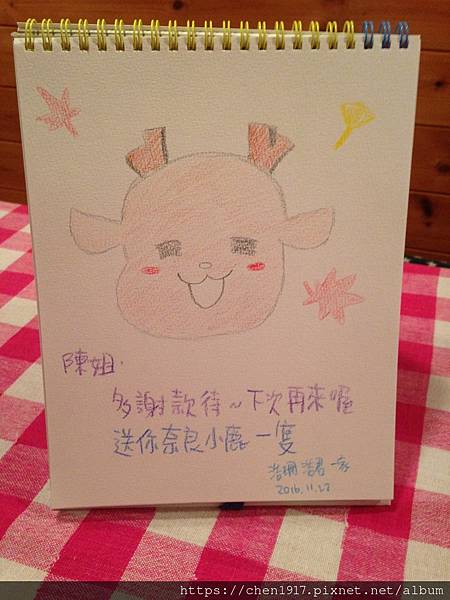 陳姐.
多謝款待~下次再來喔
送你奈良小鹿一隻
2016.11.22
https://chen1917.pixnet.net/album